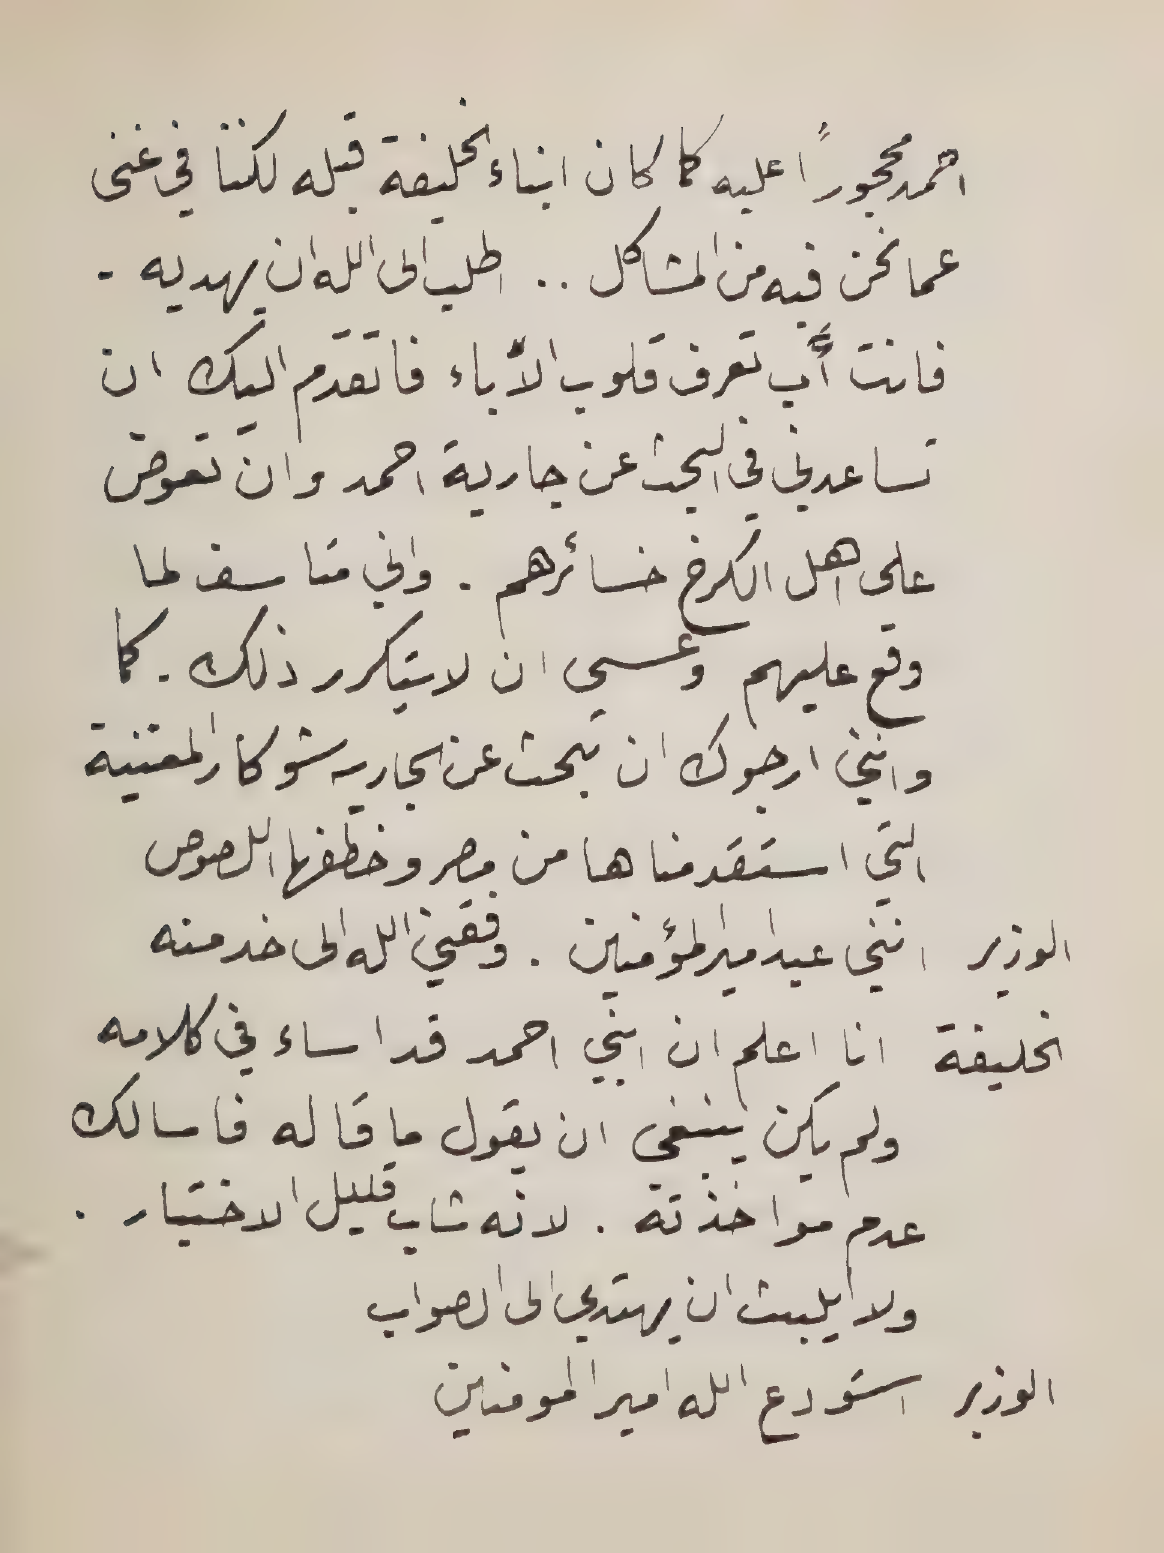 احمد محجوراً عليه كما كان ابناء الخليفة قبله لكنا في غنى
عما نحن فيه من المشاكل .. اطلب الى الله ان يهديه -
فانت أب تعرف قلوب الأباء فاتقدم اليك ان
تساعدني في البحث عن جارية احمد وان تعوض
على اهل الكرخ خسائرهم . واني متاسف لما
وقع عليهم وعسى ان لا يتكرر ذلك . كما
وانني ارجوك ان تبحث عن الجاريه شوكار المغنية
التي استقدمناها من مصر وخطفها اللصوص
الوزير انني عبد امير المؤمنين . وفقني الله الى خدمته
الخليفة انا اعلم ان ابني احمد قد اساء في كلامه
ولم يكن ينبغي ان يقول ما قاله فاسالك
عدم مواخذته . لانه شاب قليل الاختبار .
ولا يلبث ان يهتدي الى الصواب
الوزير استودع الله امير المومنين